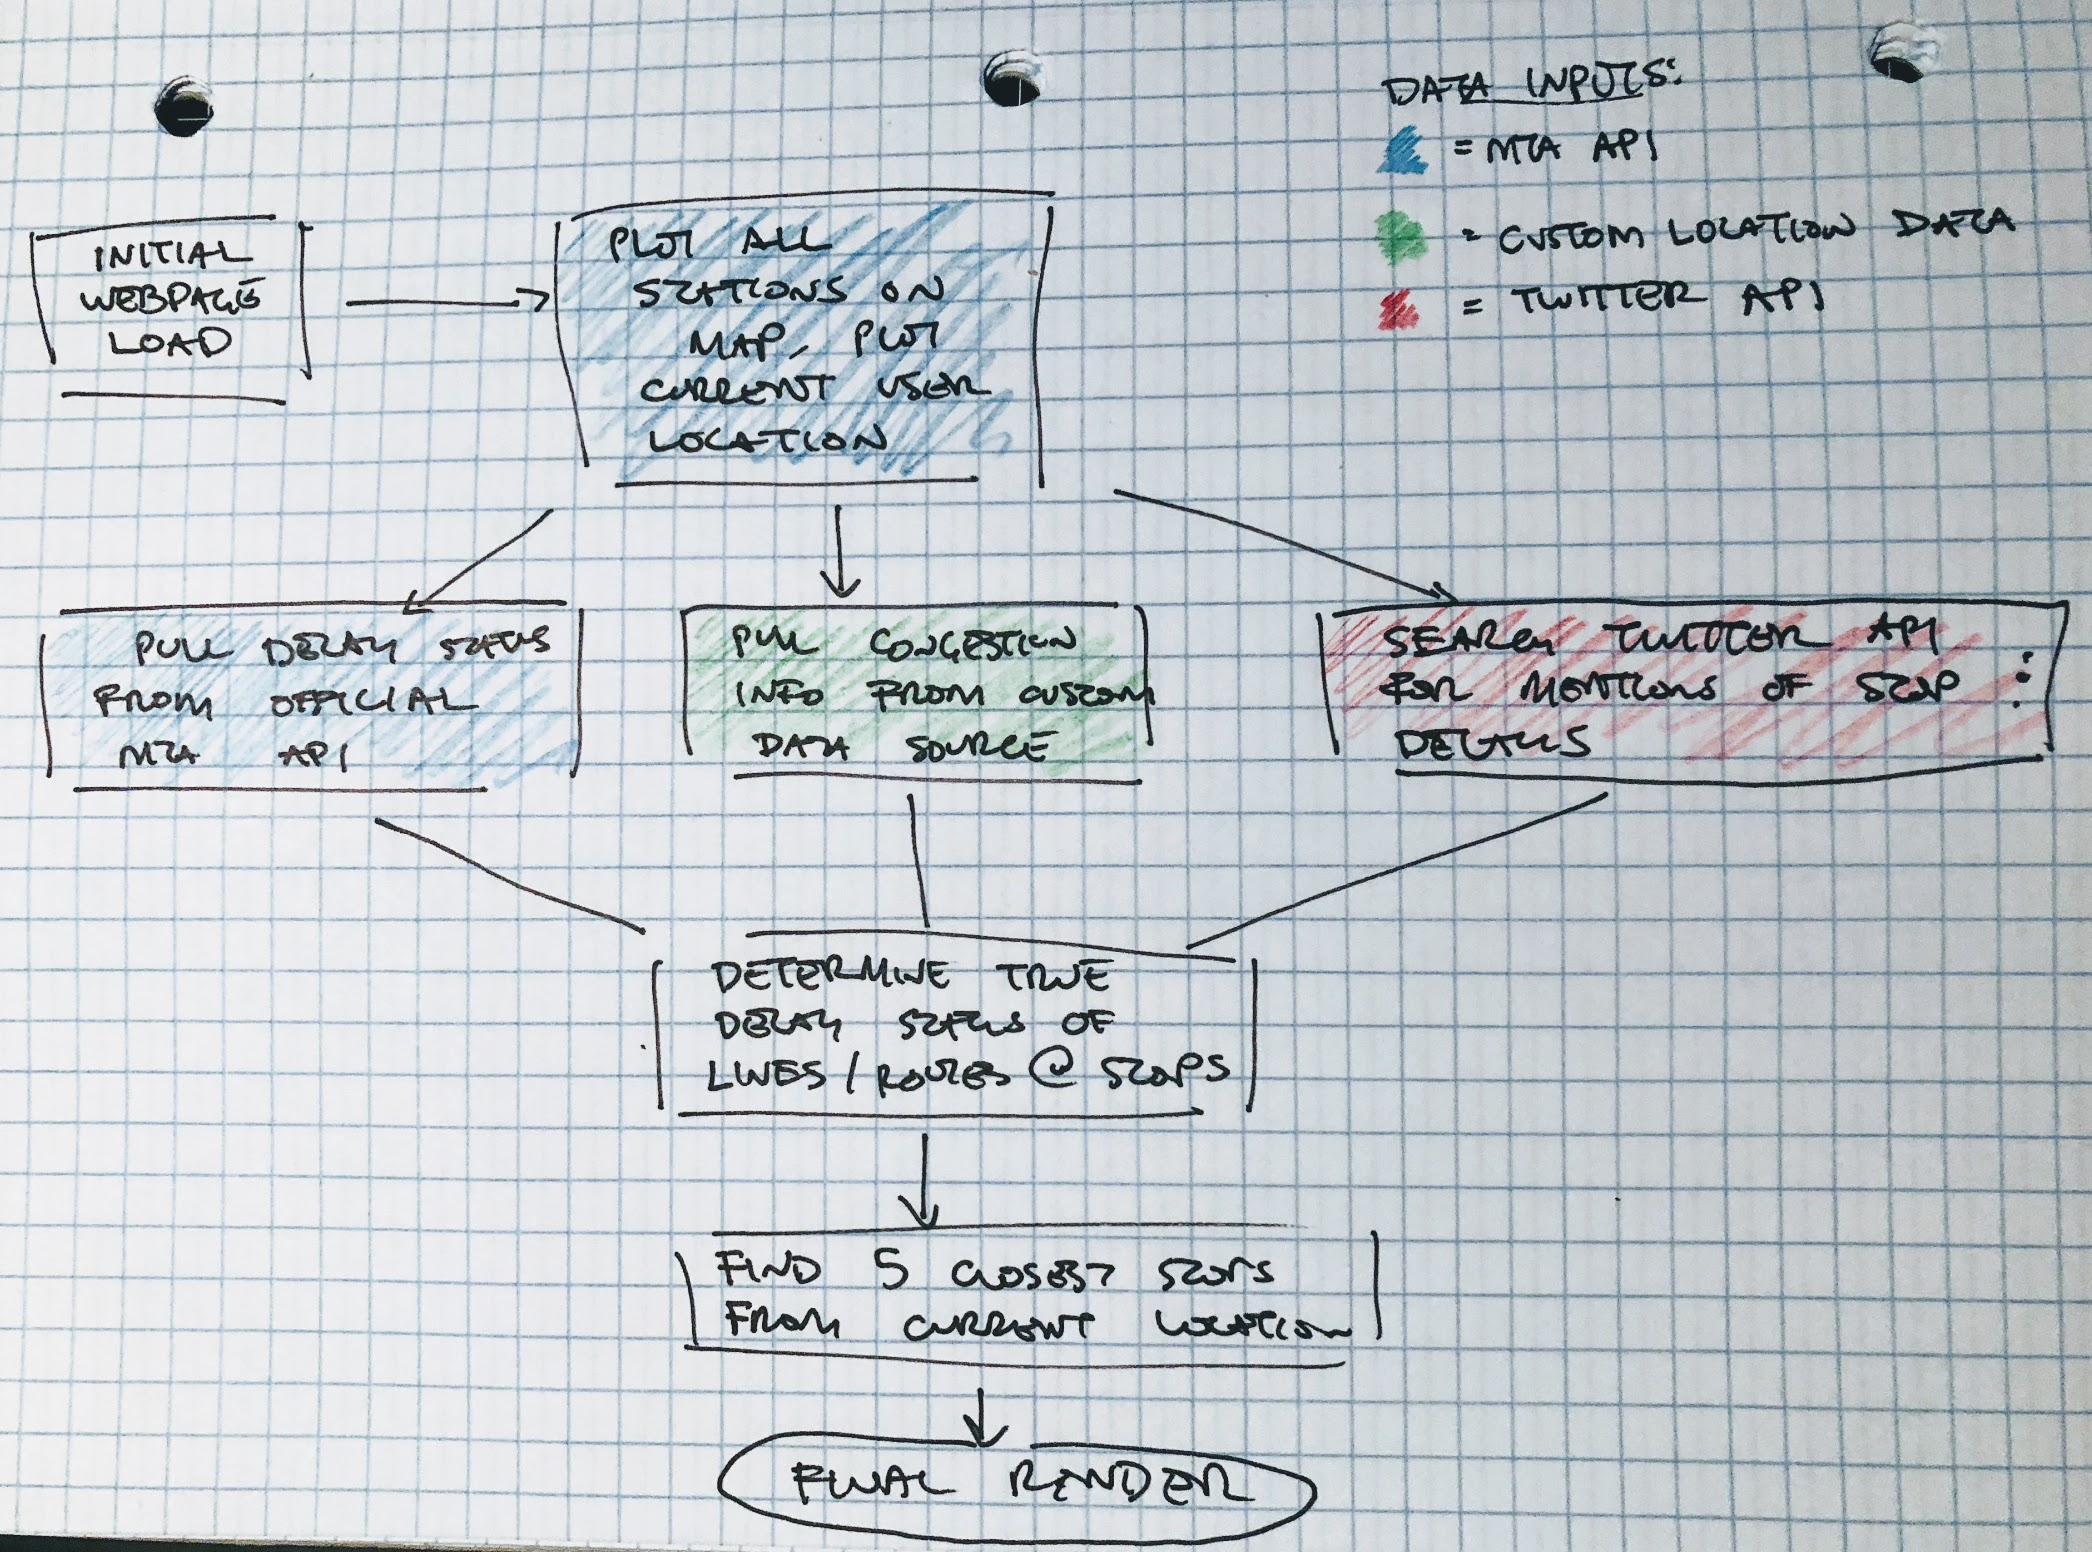 DATA INPUTS:
= MTA API
= CUSTOM LOCATION DATA
= TWITTER API
INITIAL
WEBPAGE
LOAD
PLOT ALL
STATIONS ON
MAP, PLOT
CURRENT USER
LOCATION
PULL DELAY STATUS
FROM OFFICIAL
MTA API
PULL CONGESTION
INFO FROM CUSTOM
DATA SOURCE
SEARCH TWITTER API
FOR MENTIONS OF STOP :
DETAILS
DETERMINE TRUE
DELAY STATUS OF
LINES / ROUTES @ STOPS
FIND 5 CLOSEST STOPS
FROM CURRENT LOCATION
FINAL RENDER